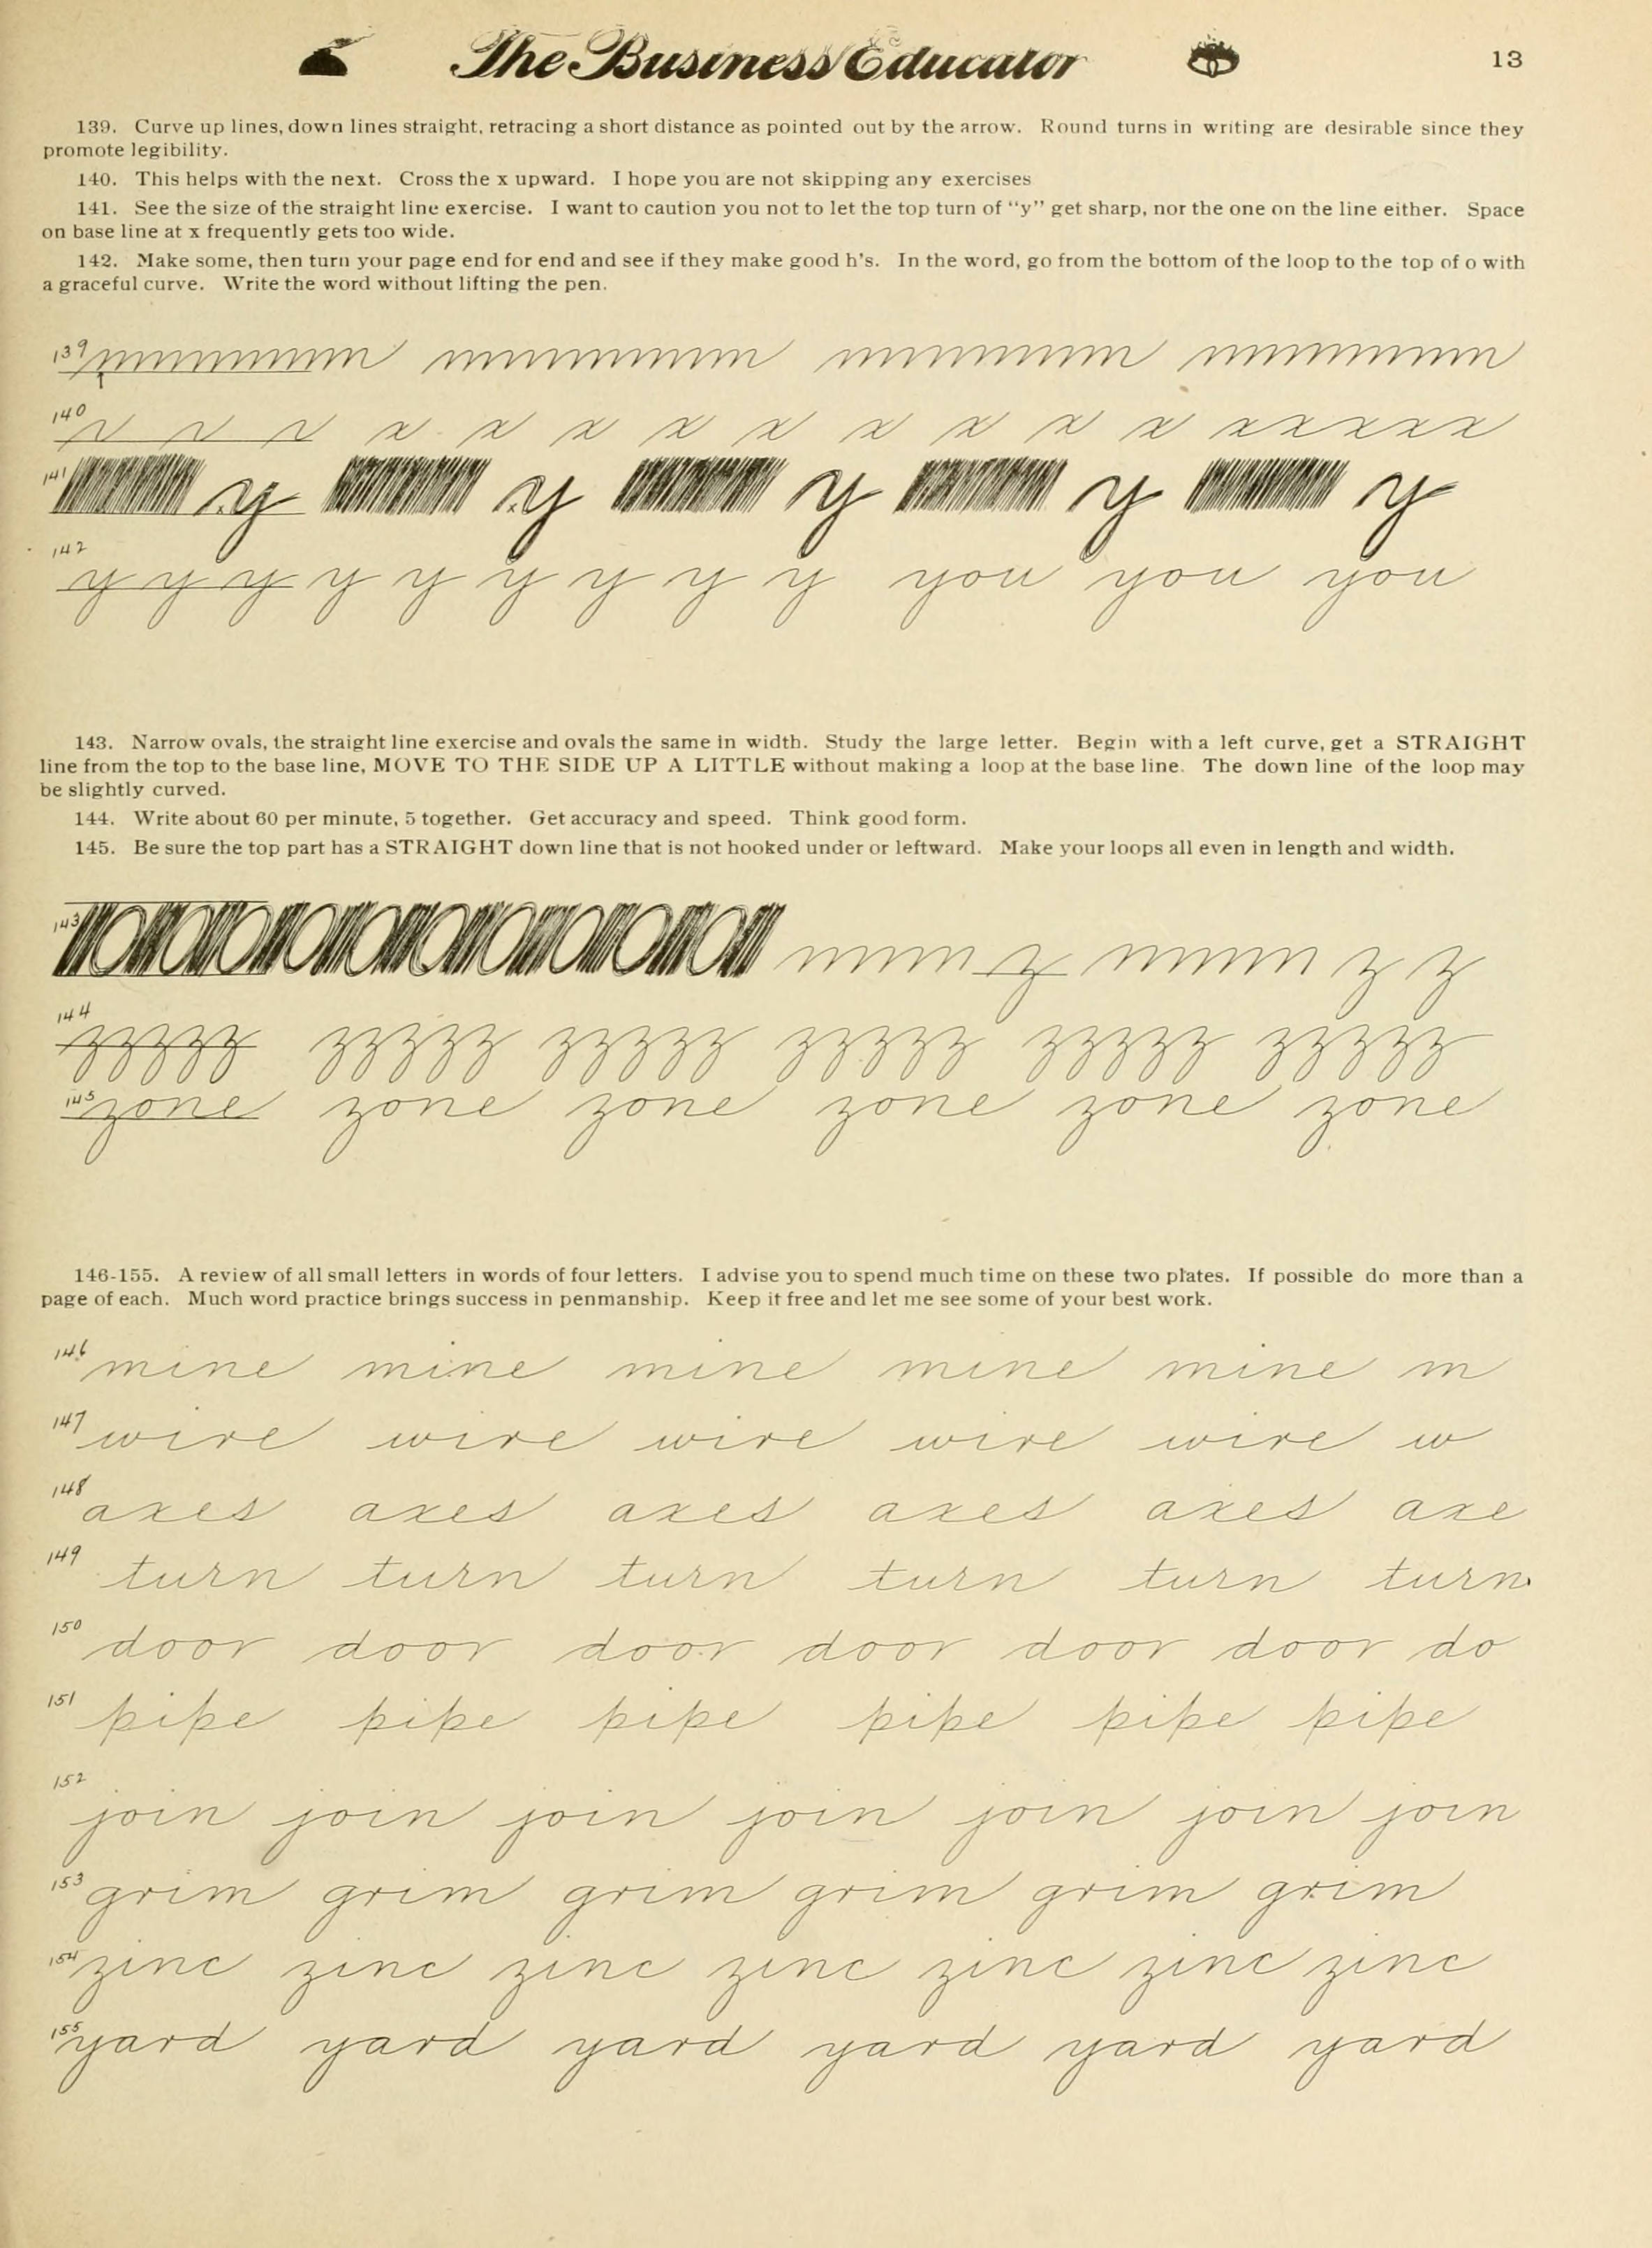 The Business Educator 13
139. Curve up lines, down lines straight, retracing a short distance as pointed out by the arrow. Round turns in writing are desirable since they
promote legibility.
140. This helps with the next. Cross the x upward. I hope you are not skipping any exercises
141. See the size of the straight line exercise. I want to caution you not to let the top turn of "y" get sharp, nor the one on the line either. Space
on base line at x frequently gets too wide.
142. Make some, then turn your page end for end and see if they make good h's. In the word, go from the bottom of the loop to the top of o with
a graceful curve. Write the word without lifting the pen.
139
140 x x x x x x x x x x x x x x
141 y y y y y
142
y y y y y y y y y you you you
143. Narrow ovals, the straight line exercise and ovals the same in width. Study the large letter. Begin with a left curve, get a STRAIGHT
line from the top to the base line, MOVE TO THE SIDE UP A LITTLE without making a loop at the base line. The down line of the loop may
be slightly curved.
144. Write about 60 per minute, 5 together. Get accuracy and speed. Think good form.
145. Be sure the top part has a STRAIGHT down line that is not hooked under or leftward. Make your loops all even in length and width.
143 z z z
144
zzzzz zzzzz zzzzz zzzzz zzzzz zzzzz
145 zone zone zone zone zone zone
146-155. A review of all small letters in words of four letters. I advise you to spend much time on these two plates. If possible do more than a
page of each. Much word practice brings success in penmanship. Keep it free and let me see some of your best work.
146 mine mine mine mine mine m
147 wire wire wire wire wire w
148 axes axes axes axes axes axe
149 turn turn turn turn turn turn
150 door door door door door door do
151 pipe pipe pipe pipe pipe pipe
152
join join join join join join join
153 grim grim grim grim grim grim
154 zinc zinc zinc zinc zinc zinc zinc
155 yard yard yard yard yard yard